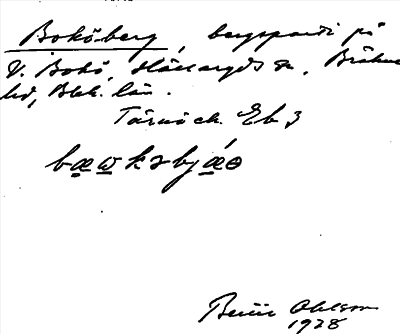 Boköberg, bergsparti på
V. Bokö, Hällaryds sn, Bräkne
hd, Blek. län.
Tärnö ch. Eb 3
Ohlsson
1928